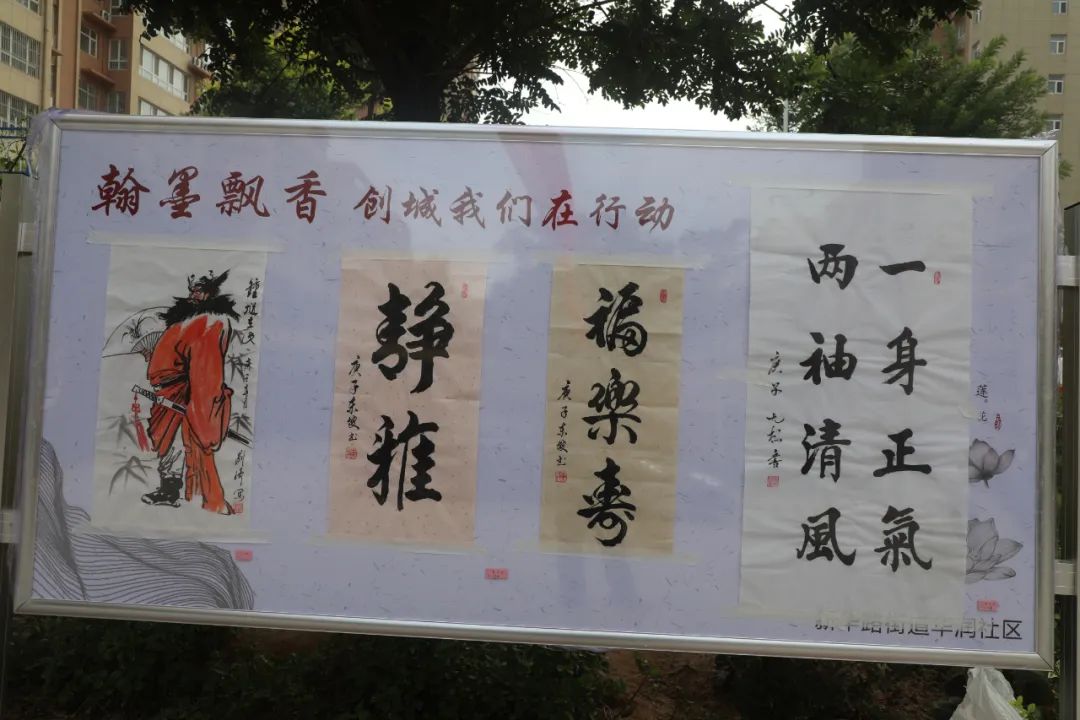 翰墨飘香 创城我们在行动
静雅
庚子东俊书
福樂寿
庚子东俊书
一身正氣
两袖清風
庚子
新华路街道华润社区